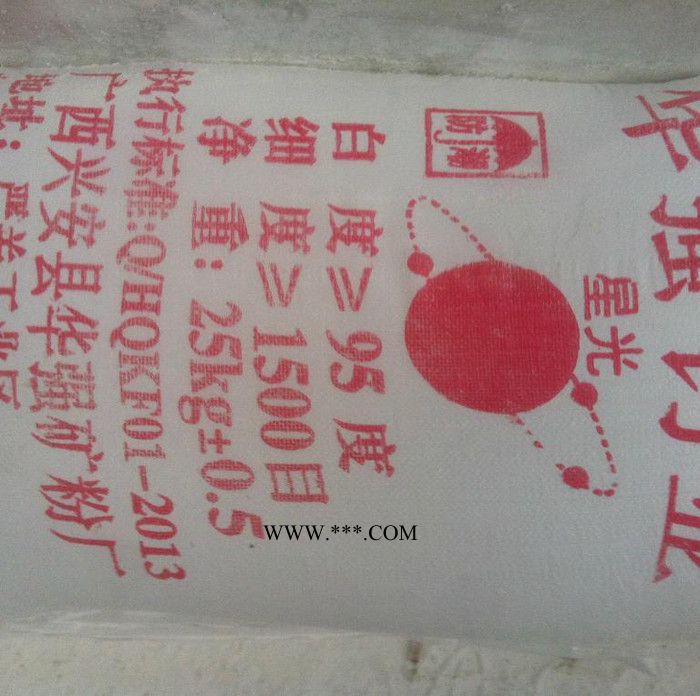 华强业
星光
防潮
白度≥95度
细度≥1500目
净重：25kg±0.5
执行标准:Q/HQKF01-2013
广西兴安县华强矿粉厂
地址：严关工业区
WWW.***.COM